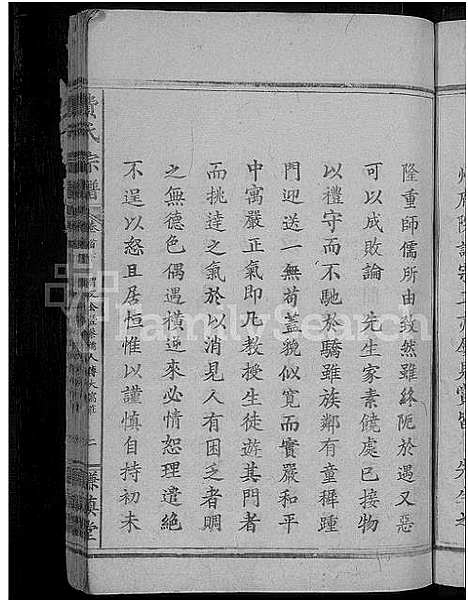 隆重師儒所由致然雖終阨於遇又惡
可以成敗論 先生家素饒處己接物
以禮守而不馳於驕雖族鄰有童穉踵
門迎送一無苟蓋貌似寬而實嚴和平
中寓嚴正氣即凡教授生徒遊其門者
而挑達之氣於以消見人有困乏者賙
之無德色偶遇橫逆來必情恕理遣絕
不逞以怒且居恒惟以謹慎自持初未
氏宗譜
堂
FamilySearch